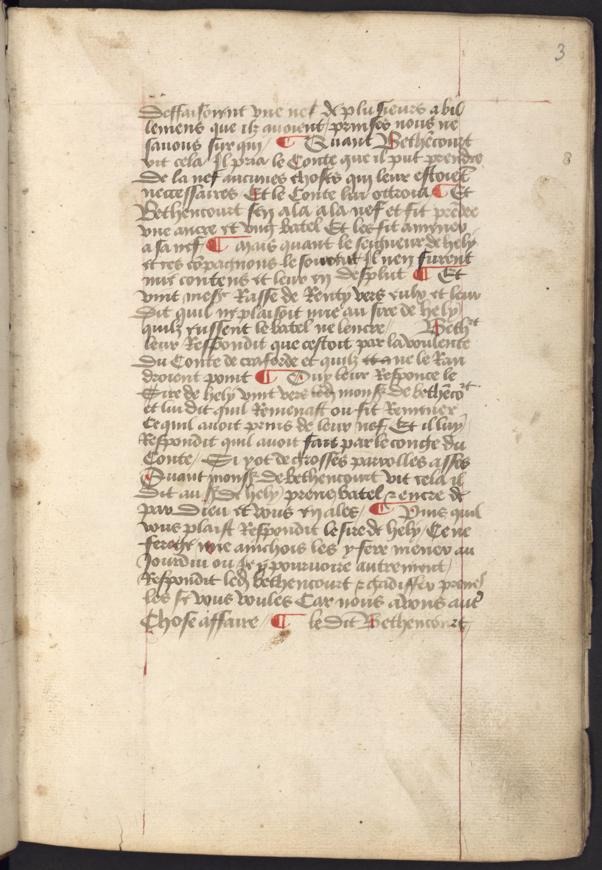 3
deffaisoient vne nef de plusieurs abil
lemens que ilz auoient prinses nous ne
sauons sur qui / ¶ Quant Bethēcourt
vit cela Il pria le Conte que il put prendre
de la nef aucunes choses qui leur estoiēt
neccessaires Et le Conte luy ottroia ¶ Et
Bethencourt sen ala a la nef et fit prēdre
vne ancre et vng batel Et les fit amener
a sa nef ¶ mais quant le seigneur de hely
et ces cōpagnons le seurent Il nen furent
mie contens et leur en desplut ¶ Et
vint mess Rasse de Renty vers eulx et leur
dit quil ne plaisoit mie au sire de hely
quilz eussent le batel ne lencre / Beth
leur Respondit que cestoit par la voulente
du Conte de craforde et quilz ne le Ran
droient point ¶ Ouy leur Responce le
Sire de hely vint vers monss de bethēco
et lui dit quil Remenast ou fit Remener
Ce quil auoit prins de leur nef Et il luy
Respondit quil auoit fait par le congie du
Conte / Si y ot de grosses parrolles asses
Quant monss de bethencourt vit cela il
dit au ss de hely prenes batel et encre de
par dieu et vous en ales / ¶ Puis quil
vous plaist Respondit le sire de hely / Ce ne
mie ainchois les y fere mener au
Jourdui ou Je y pouruoire autrement /
Respondit led bethencourt et gadiffer prenes
les se vous voules Car nous auons autre
Chose affaire / ¶ le dit Bethencourt